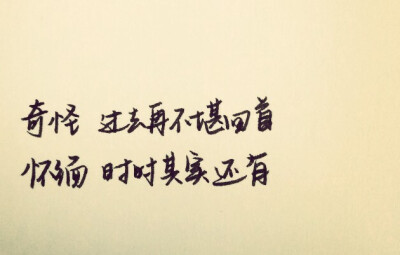 奇怪 过去再不堪回首
怀缅 时时其实还有